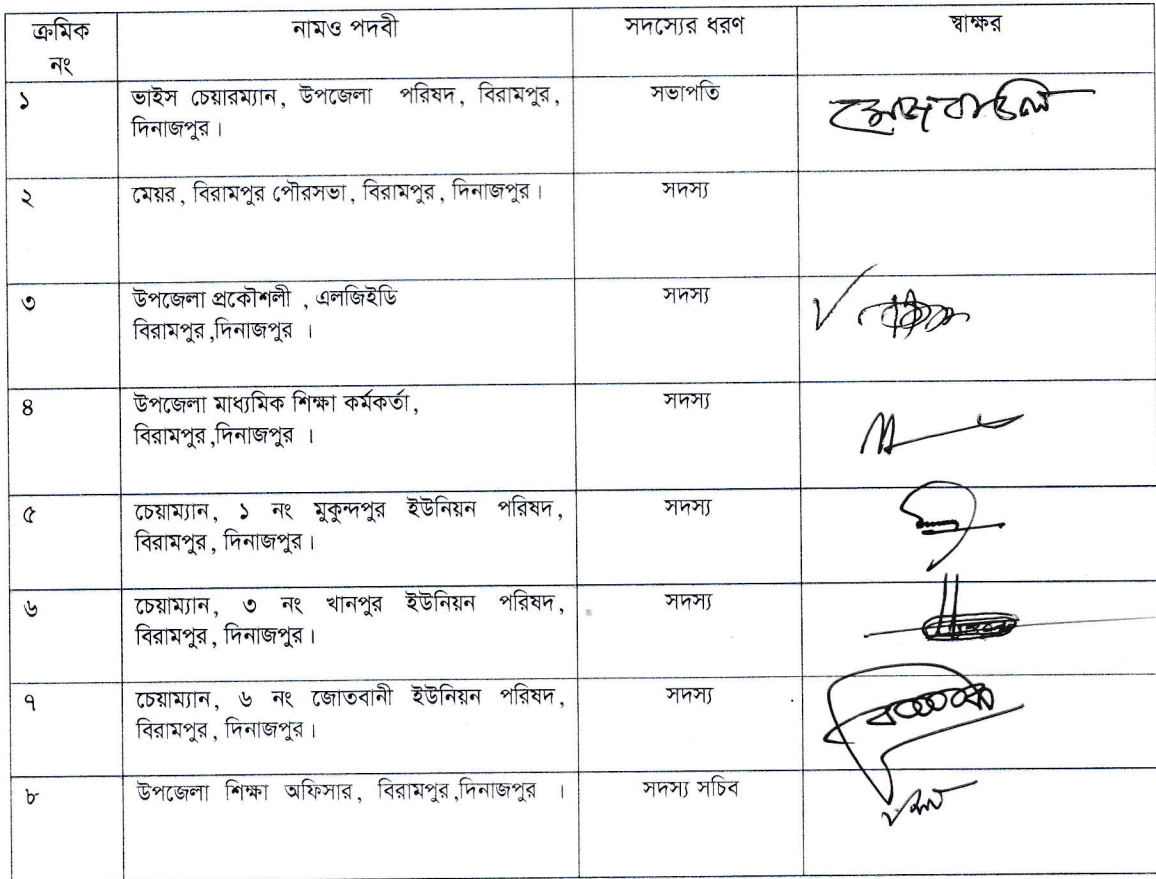 ক্রমিক নং নামও পদবী সদস্যের ধরণ স্বাক্ষর
১ ভাইস চেয়ারম্যান, উপজেলা পরিষদ, বিরামপুর, সভাপতি
দিনাজপুর।
২ মেয়র, বিরামপুর পৌরসভা, বিরামপুর, দিনাজপুর। সদস্য
৩ উপজেলা প্রকৌশলী , এলজিইডি সদস্য
বিরামপুর,দিনাজপুর ।
৪ উপজেলা মাধ্যমিক শিক্ষা কর্মকর্তা, সদস্য
বিরামপুর,দিনাজপুর ।
৫ চেয়াম্যান, ১ নং মুকুন্দপুর ইউনিয়ন পরিষদ, সদস্য
বিরামপুর, দিনাজপুর।
৬ চেয়াম্যান, ৩ নং খানপুর ইউনিয়ন পরিষদ, সদস্য
বিরামপুর, দিনাজপুর।
৭ চেয়াম্যান, ৬ নং জোতবানী ইউনিয়ন পরিষদ, সদস্য
বিরামপুর, দিনাজপুর।
৮ উপজেলা শিক্ষা অফিসার, বিরামপুর,দিনাজপুর । সদস্য সচিব